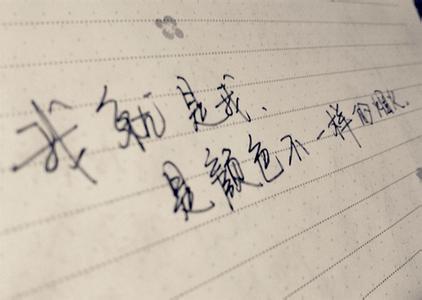 我就是我、
是颜色不一样的烟火.